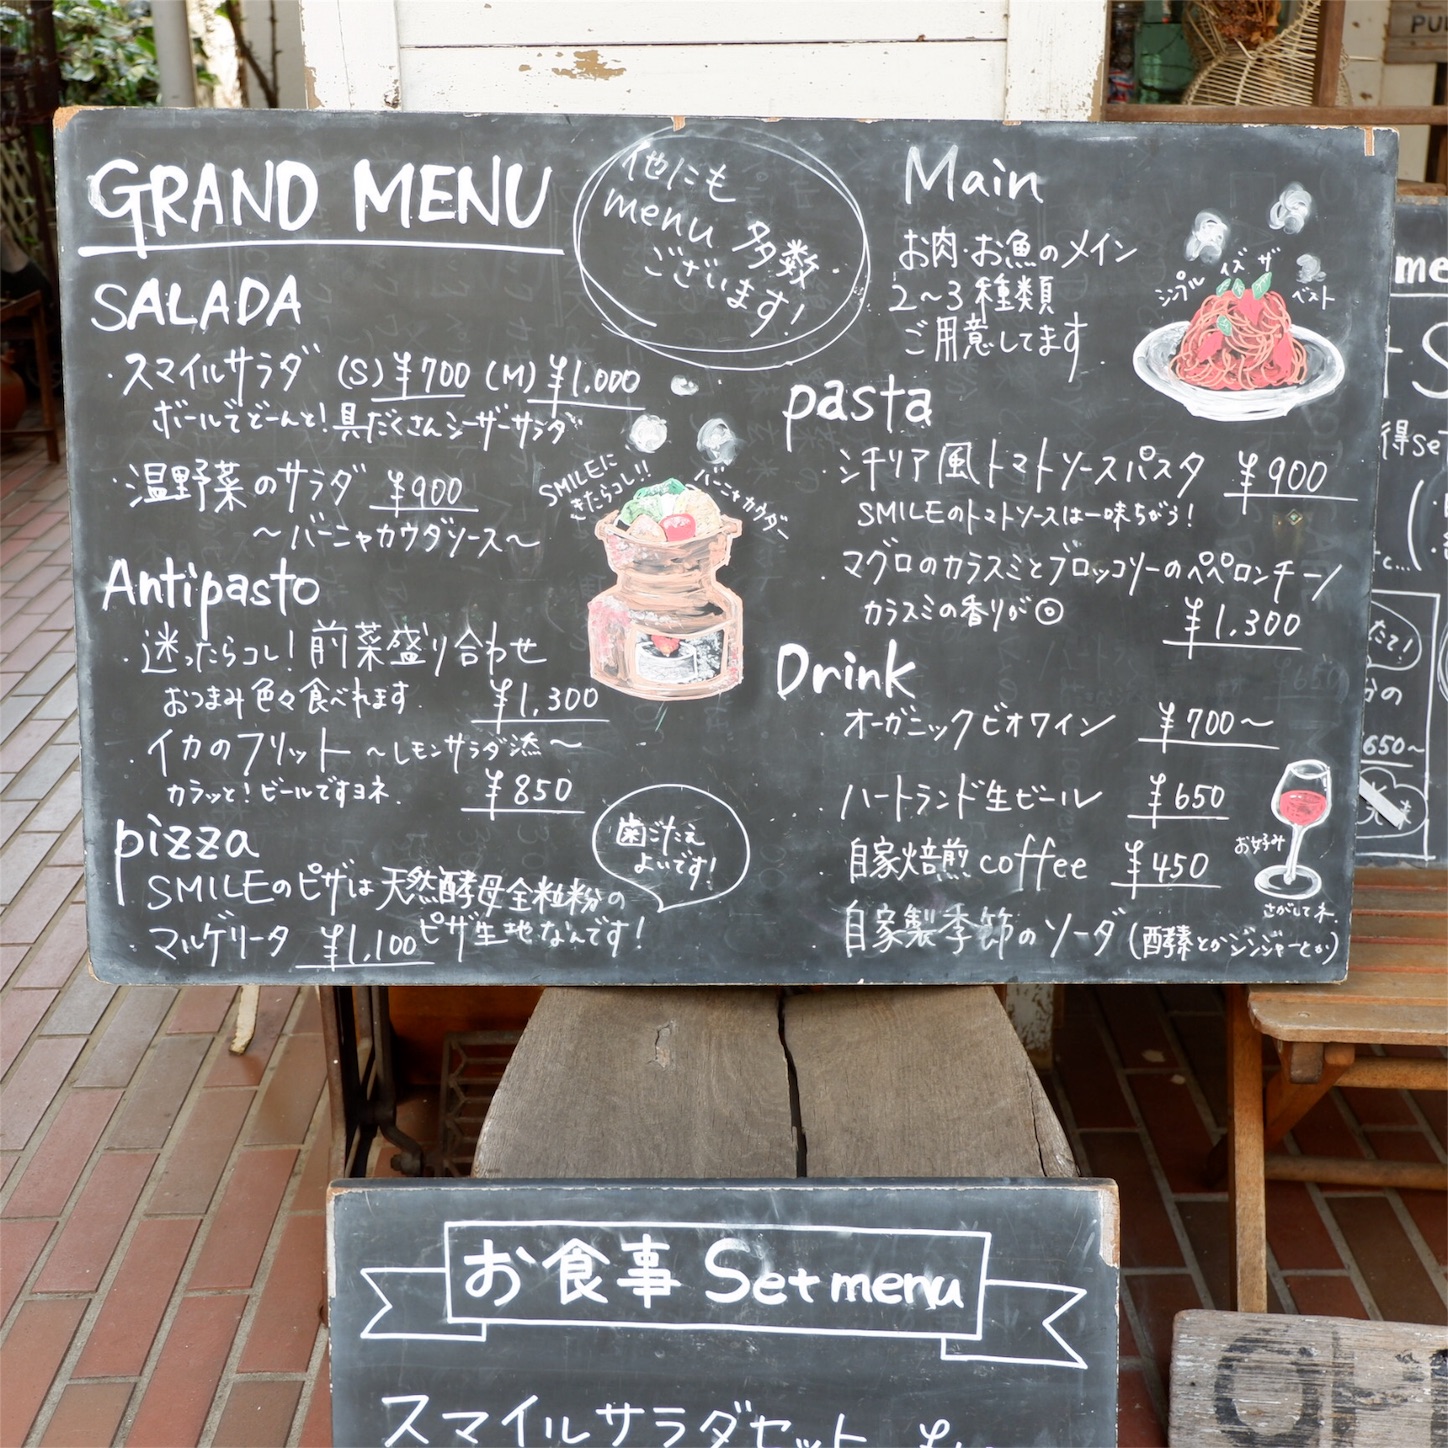 GRAND MENU
他にも
menu 多数
ございます!
SALADA
・スマイルサラダ (S) ¥700 (M) ¥1,000
ボールでどーんと!具だくさんシーザーサラダ
・温野菜のサラダ ¥900
〜バーニャカウダソース〜
SMILEに
きたらコレ!!
バーニャカウダー
Antipasto
・迷ったらコレ!前菜盛り合わせ
おつまみ色々食べれます. ¥1,300
・イカのフリット 〜レモンサラダ添〜
カラッと!ビールですヨネ. ¥850
pizza
SMILEのピザは天然酵母全粒粉の
ピザ生地なんです!
・マルゲリータ ¥1,100
歯ごたえ
よいです!
Main
お肉・お魚のメイン
2〜3種類
ご用意してます.
シンプル イズ ザ ベスト
pasta
・シチリア風トマトソースパスタ ¥900
SMILEのトマトソースは一味ちがう!
・マグロのカラスミとブロッコリーのペペロンチーノ
カラスミの香りが◎ ¥1,300
Drink
・オーガニックビオワイン ¥700〜
・ハートランド生ビール ¥650
・自家焙煎coffee ¥450
・自家製季節のソーダ(酵素とかジンジャーとか)
お好み
さがしてネ.
お食事 Set menu
スマイルサラダセット
me
得se
c...(
たて!
分の
650〜
味